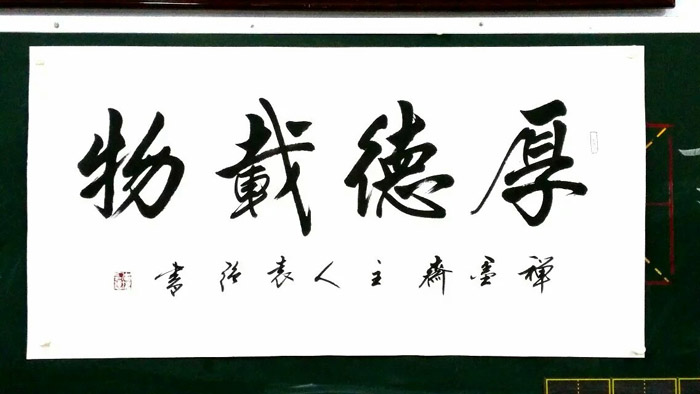 厚德載物
禅墨齋主人袁强書